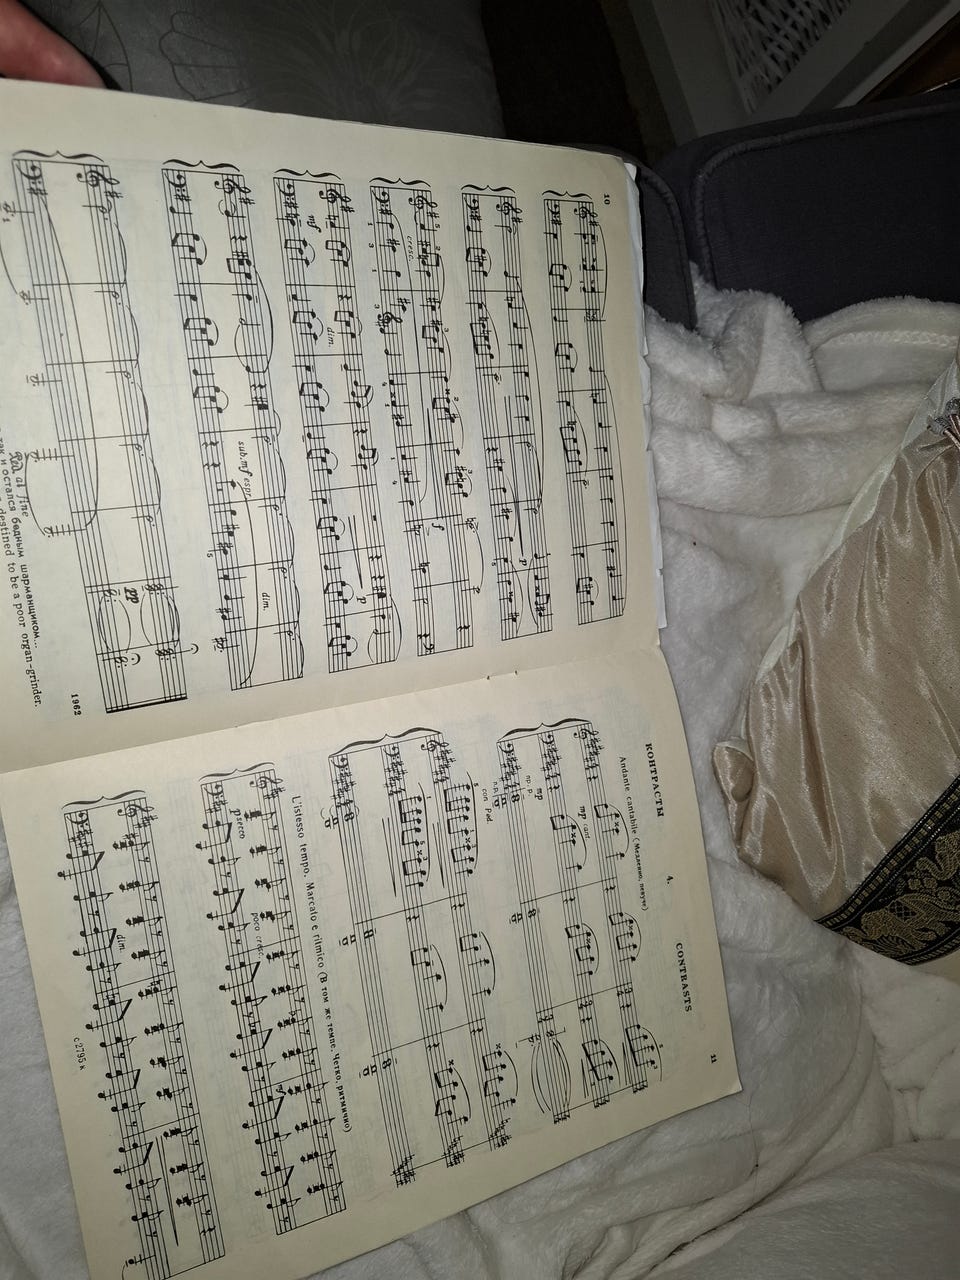 10
cresc.
f
p
mf
dim.
p
sub. mf espr.
dim.
pp
Red. al fine
так и остался бедным шарманщиком...
destined to be a poor organ-grinder.
1962
11
4.
КОНТРАСТЫ
CONTRASTS
Andante cantabile (Медленно, певуче)
mp cant.
mp
con Ped.
L'istesso tempo. Marcato e ritmico (В том же темпе. Четко, ритмично)
p secco
poco cresc.
dim.
с 2795 к